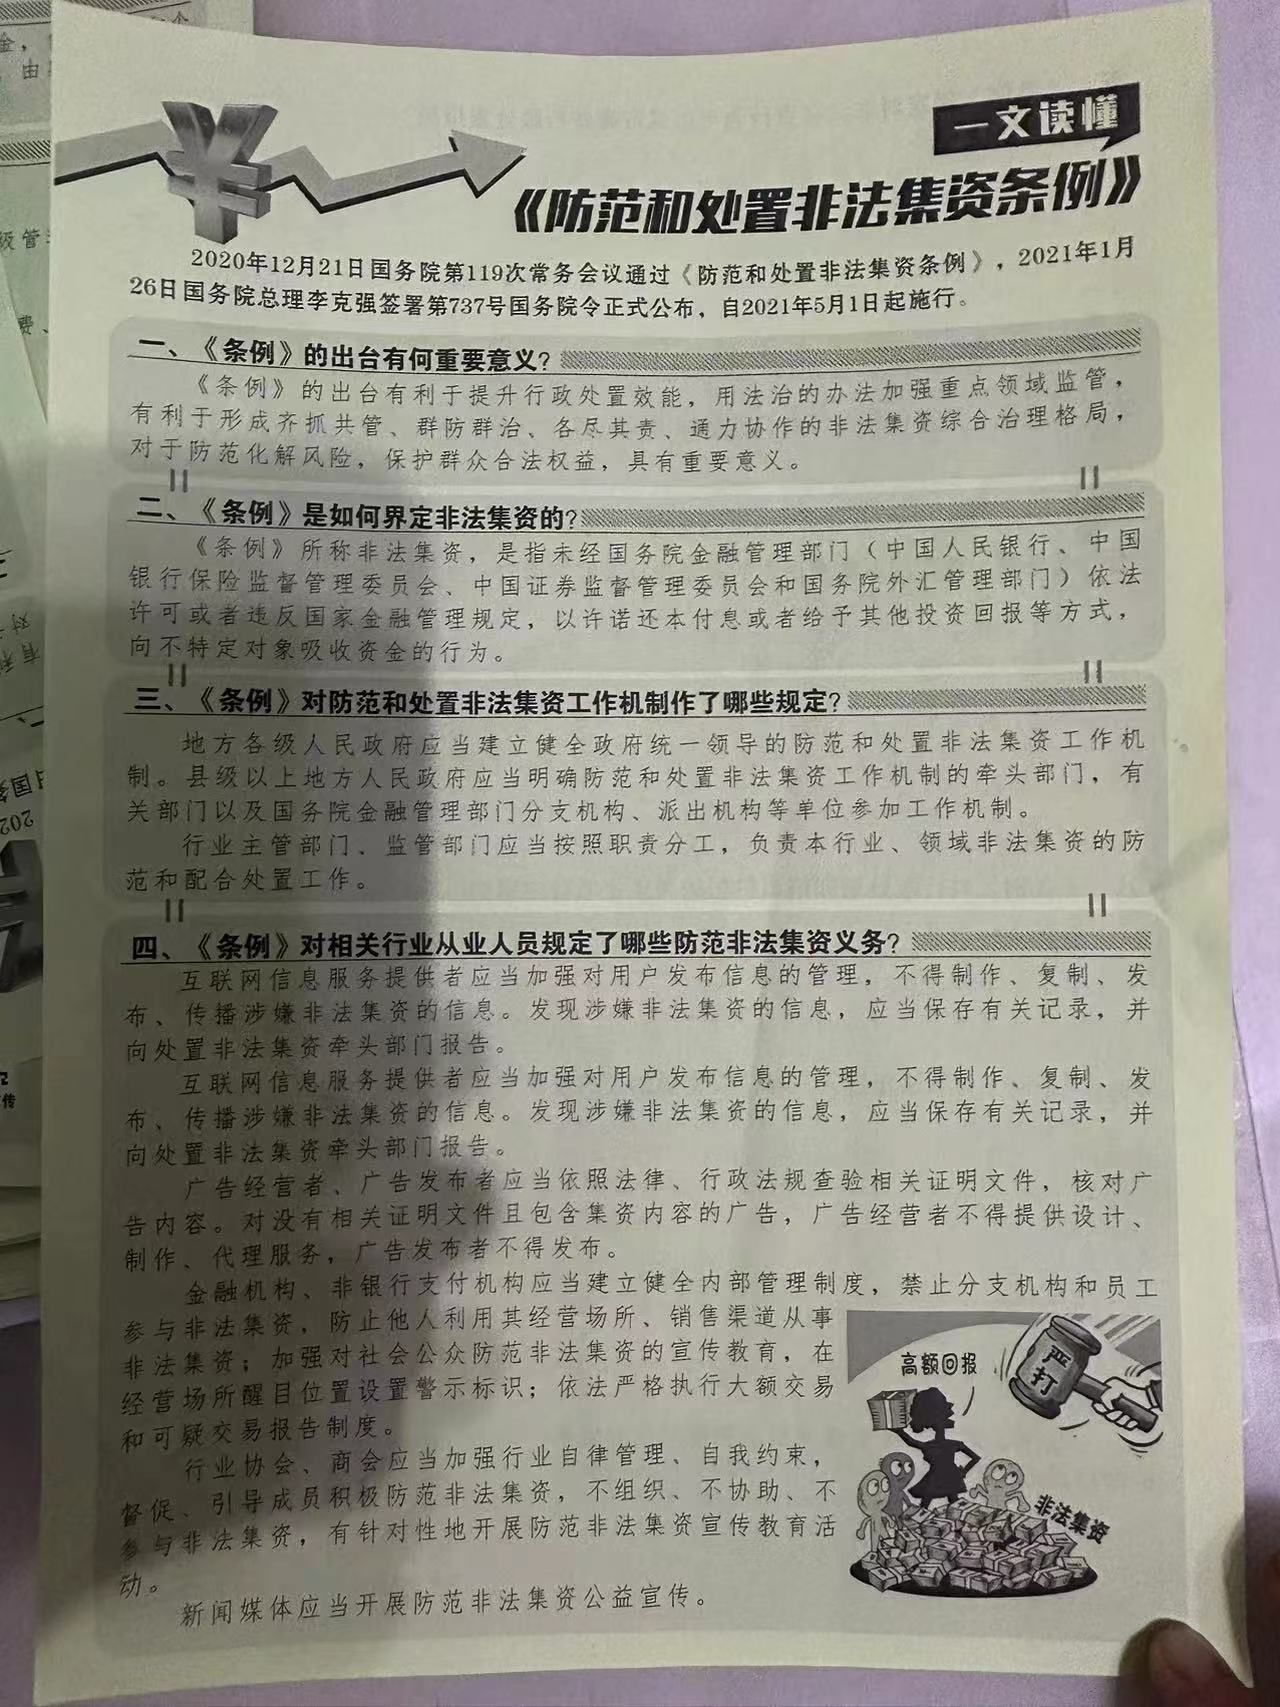 一文读懂
《防范和处置非法集资条例》
2020年12月21日国务院第119次常务会议通过《防范和处置非法集资条例》，2021年1月
26日国务院总理李克强签署第737号国务院令正式公布，自2021年5月1日起施行。
一、《条例》的出台有何重要意义？
《条例》的出台有利于提升行政处置效能，用法治的办法加强重点领域监管，
有利于形成齐抓共管、群防群治、各尽其责、通力协作的非法集资综合治理格局，
对于防范化解风险，保护群众合法权益，具有重要意义。
二、《条例》是如何界定非法集资的？
《条例》所称非法集资，是指未经国务院金融管理部门（中国人民银行、中国
银行保险监督管理委员会、中国证券监督管理委员会和国务院外汇管理部门）依法
许可或者违反国家金融管理规定，以许诺还本付息或者给予其他投资回报等方式，
向不特定对象吸收资金的行为。
三、《条例》对防范和处置非法集资工作机制作了哪些规定？
地方各级人民政府应当建立健全政府统一领导的防范和处置非法集资工作机
制。县级以上地方人民政府应当明确防范和处置非法集资工作机制的牵头部门，有
关部门以及国务院金融管理部门分支机构、派出机构等单位参加工作机制。
行业主管部门、监管部门应当按照职责分工，负责本行业、领域非法集资的防
范和配合处置工作。
四、《条例》对相关行业从业人员规定了哪些防范非法集资义务？
互联网信息服务提供者应当加强对用户发布信息的管理，不得制作、复制、发
布、传播涉嫌非法集资的信息。发现涉嫌非法集资的信息，应当保存有关记录，并
向处置非法集资牵头部门报告。
互联网信息服务提供者应当加强对用户发布信息的管理，不得制作、复制、发
布、传播涉嫌非法集资的信息。发现涉嫌非法集资的信息，应当保存有关记录，并
向处置非法集资牵头部门报告。
广告经营者、广告发布者应当依照法律、行政法规查验相关证明文件，核对广
告内容。对没有相关证明文件且包含集资内容的广告，广告经营者不得提供设计、
制作、代理服务，广告发布者不得发布。
金融机构、非银行支付机构应当建立健全内部管理制度，禁止分支机构和员工
参与非法集资，防止他人利用其经营场所、销售渠道从事
非法集资；加强对社会公众防范非法集资的宣传教育，在
经营场所醒目位置设置警示标识；依法严格执行大额交易
和可疑交易报告制度。
行业协会、商会应当加强行业自律管理、自我约束，
督促、引导成员积极防范非法集资，不组织、不协助、不
参与非法集资，有针对性地开展防范非法集资宣传教育活
动。
新闻媒体应当开展防范非法集资公益宣传。
高额回报
严打
非法集资